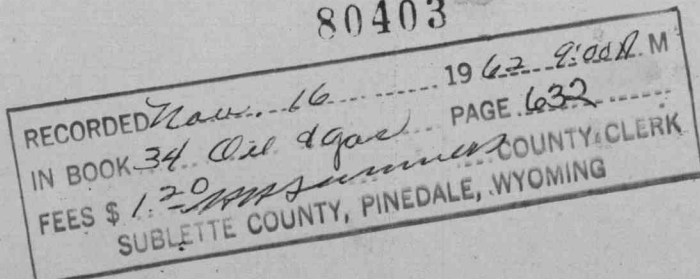 80403
RECORDED Nov. 16 1962 9:00 A. M
IN BOOK 34 Oil & gas PAGE 632
FEES $ 1.20 COUNTY CLERK
SUBLETTE COUNTY, PINEDALE, WYOMING